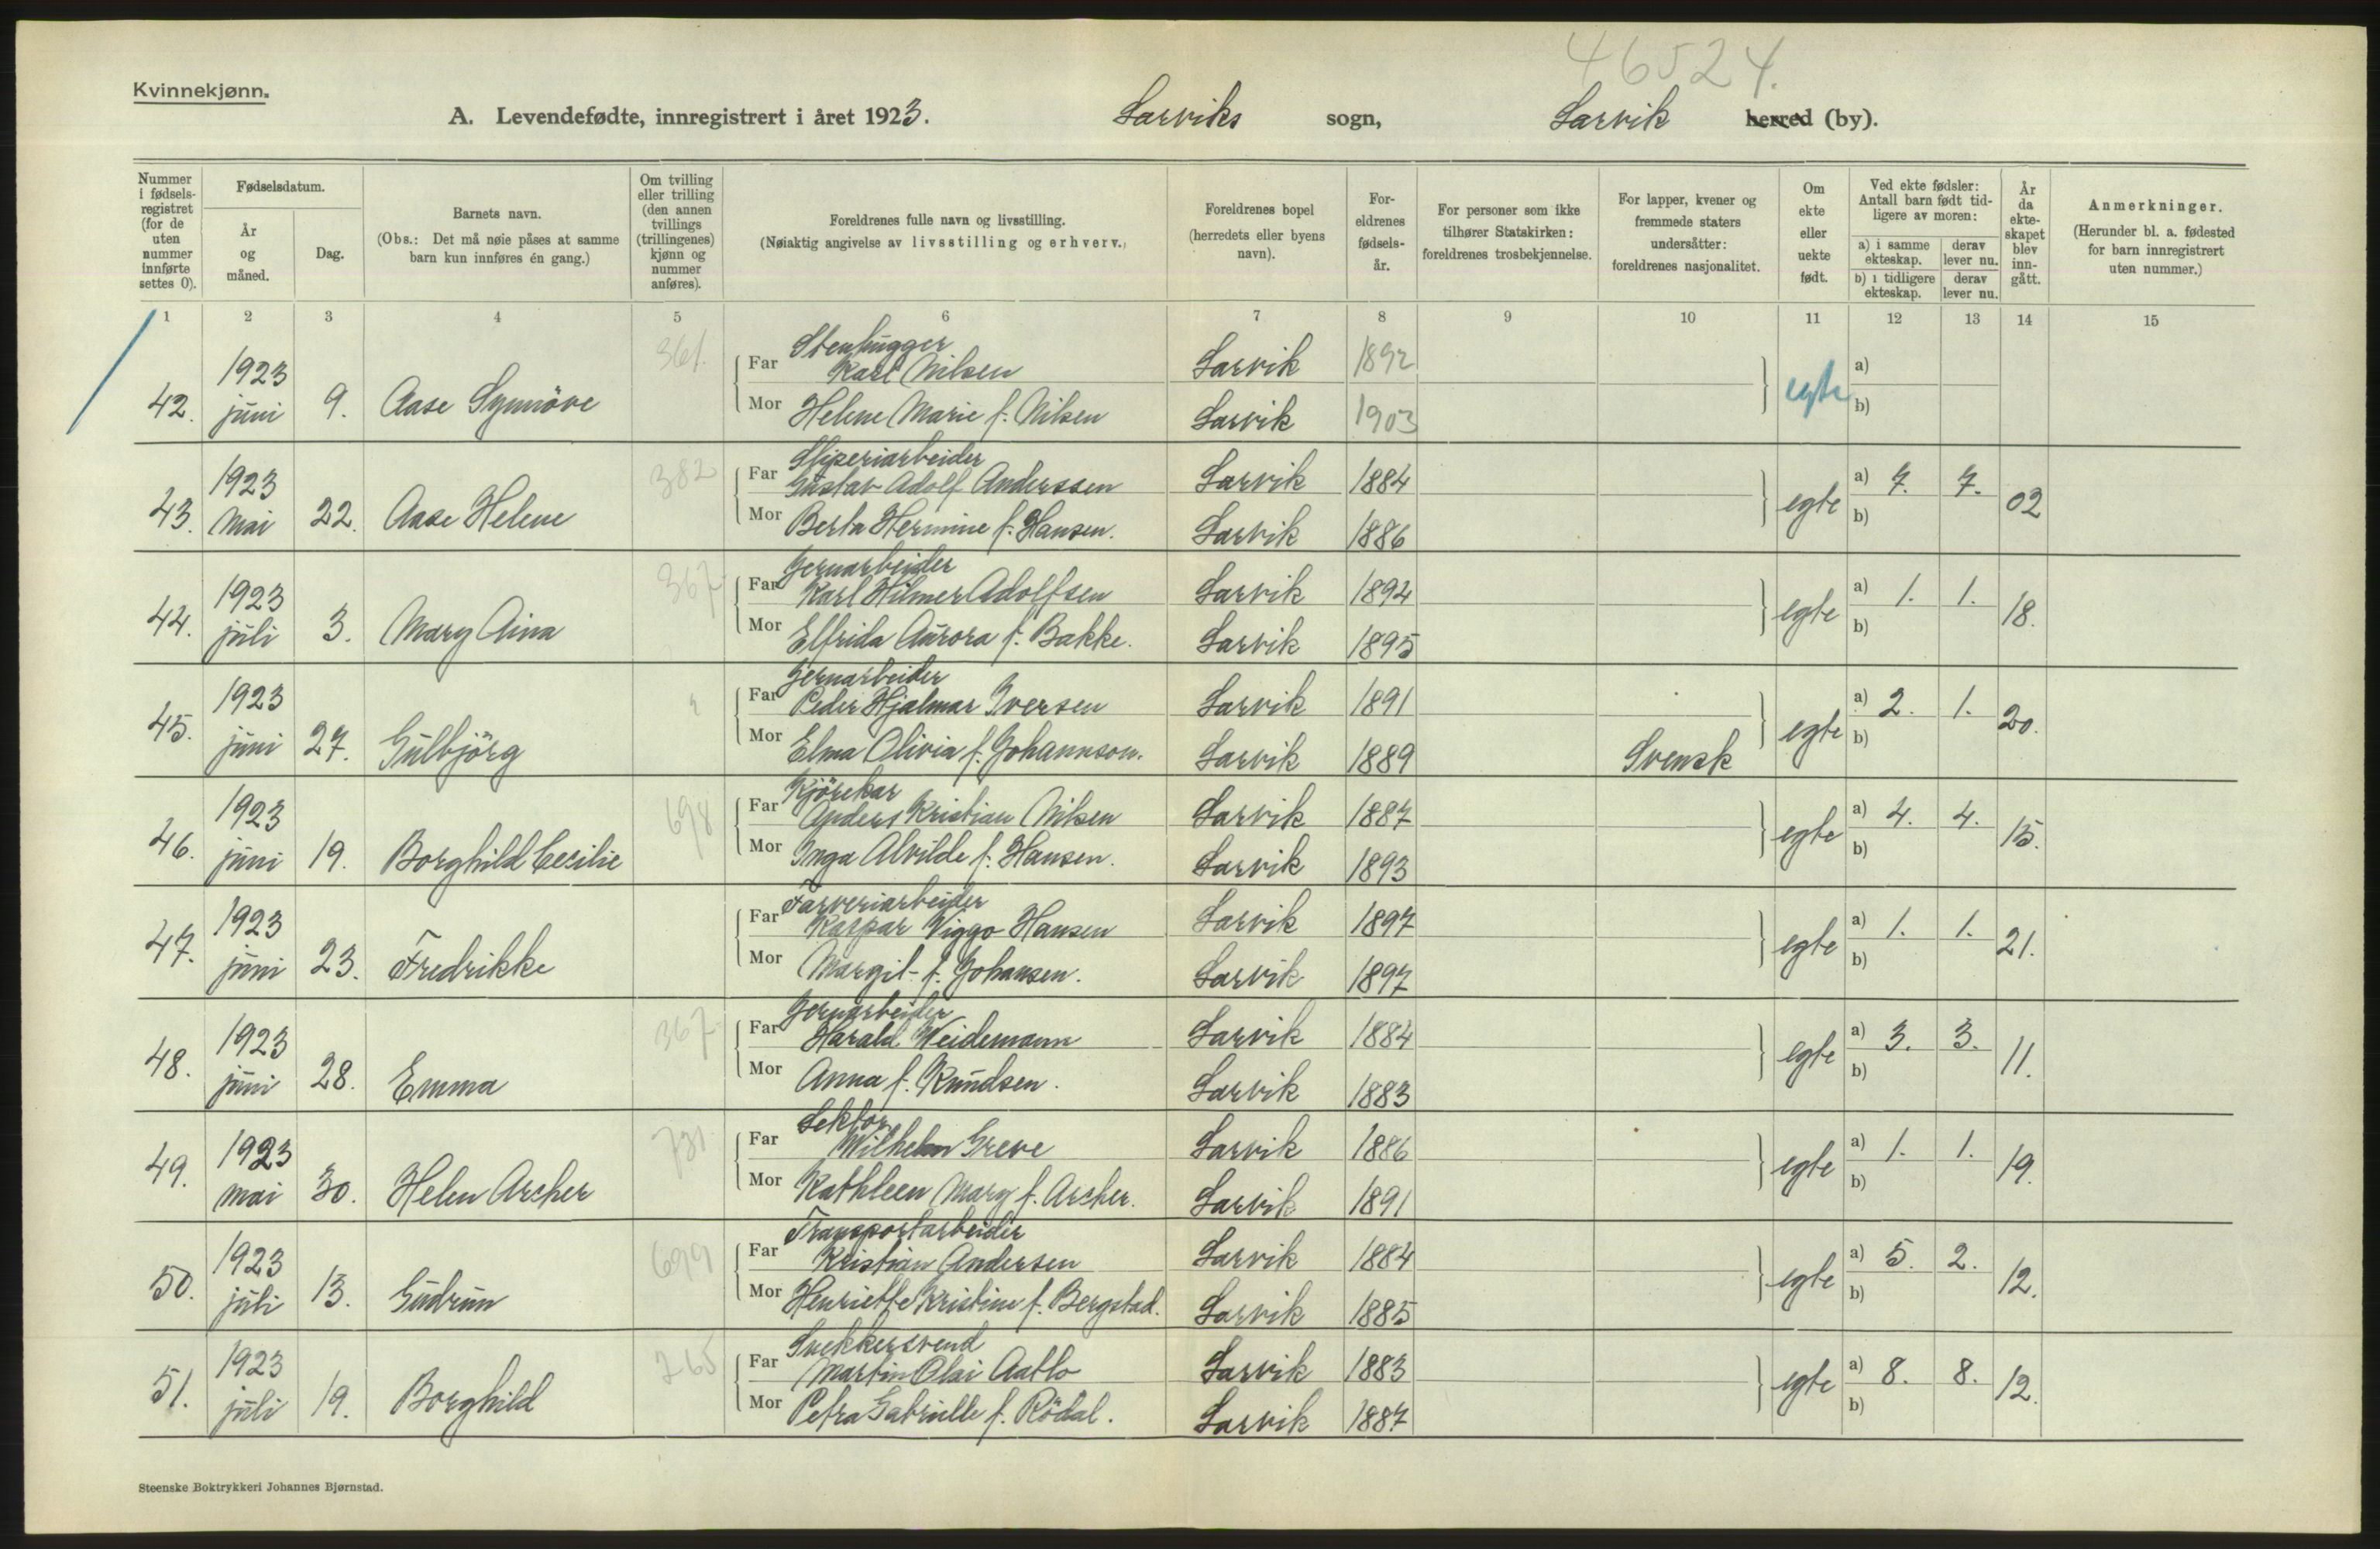 46524.
Kvinnekjønn.
A. Levendefødte, innregistrert i året 1923. Larviks sogn, Larvik herred (by).
Nummer i fødsels-registret (for de uten nummer innførte settes 0).
Fødselsdatum.
År og måned.
Dag.
Barnets navn.
(Obs.: Det må nøie påses at samme barn kun innføres én gang.)
Om tvilling eller trilling (den annen tvillings (trillingenes) kjønn og nummer anføres).
Foreldrenes fulle navn og livsstilling.
(Nøiaktig angivelse av livsstilling og erhverv.)
Foreldrenes bopel (herredets eller byens navn).
For-eldrenes fødsels-år.
For personer som ikke tilhører Statskirken: foreldrenes trosbekjennelse.
For lapper, kvener og fremmede staters undersåtter: foreldrenes nasjonalitet.
Om ekte eller uekte født.
Ved ekte fødsler: Antall barn født tid-ligere av moren:
a) i samme ekteskap. derav lever nu.
b) i tidligere ekteskap. derav lever nu.
År da ekte-skapet blev inn-gått.
Anmerkninger.
(Herunder bl. a. fødested for barn innregistrert uten nummer.)
1 2 3 4 5 6 7 8 9 10 11 12 13 14 15
361. Stenhugger
1923 Far Karl Nilsen Larvik 1892 a)
42. juni 9. Aase Synnöve egte
Mor Helene Marie f. Nilsen Larvik 1903 b)
382 Sliperiarbeider
1923 Far Gustav Adolf Anderssen Larvik 1884 a) 7. 7.
43. Mai 22. Aase Helene egte 02
Mor Berta Hermine f. Hansen. Larvik 1886 b)
367 Jernarbeider
1923 Far Karl Hilmer Adolfsen Larvik 1894 a) 1. 1.
44. juli 3. Mary Aina egte 18.
Mor Elfrida Aurora f. Bakke. Larvik 1895 b)
Jernarbeider
1923 Far Peder Hjalmar Iversen Larvik 1891 a) 2. 1.
45. juni 27. Gulbjörg egte 20.
Mor Elma Olivia f. Johannson. Larvik 1889 Svensk b)
698 Kjörekar
1923 Far Anders Kristian Nilsen Larvik 1887 a) 4. 4.
46. juni 19. Borghild Cecilie egte 15.
Mor Inga Alvilde f. Hansen. Larvik 1893 b)
Farveriarbeider
1923 Far Kaspar Viggo Hansen Larvik 1897 a) 1. 1.
47. juni 23. Fredrikke egte 21.
Mor Margit f. Johansen. Larvik 1897 b)
367 Jernarbeider
1923 Far Harald Weidemann Larvik 1884 a) 3. 3.
48. juni 28. Emma egte 11.
Mor Anna f. Knudsen. Larvik 1883 b)
731 Lektor
1923 Far Wilhelm Greve Larvik 1886 a) 1. 1.
49. mai 30. Helen Archer egte 19.
Mor Kathleen Mary f. Archer. Larvik 1891 b)
699 Transportarbeider
1923 Far Kristian Andersen Larvik 1884 a) 5. 2.
50. juli 13. Gudrun egte 12.
Mor Henriette Kristine f. Bergstad. Larvik 1885 b)
765 Snekkersvend
1923 Far Martin Olai Aatlo Larvik 1883 a) 8. 8.
51. juli 19. Borghild egte 12.
Mor Petra Gabrielle f. Rödal. Larvik 1887 b)
Steenske Boktrykkeri Johannes Bjørnstad.